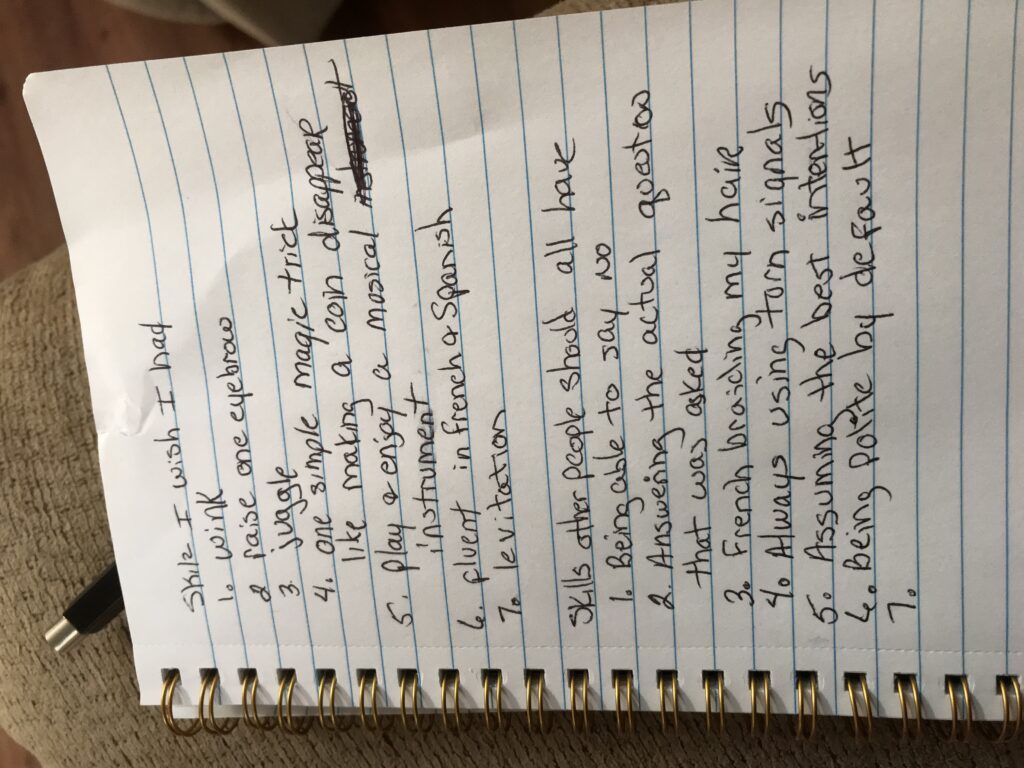 Skills I wish I had
1. wink
2 raise one eyebrow
3 juggle
4. one simple magic trick
like making a coin disappear
5. play & enjoy a musical
instrument
6. fluent in French & Spanish
7. levitation
Skills other people should all have
1. Being able to say no
2. Answering the actual question
that was asked
3. French braiding my hair
4. Always using turn signals
5. Assuming the best intentions
6. Being polite by default
7.